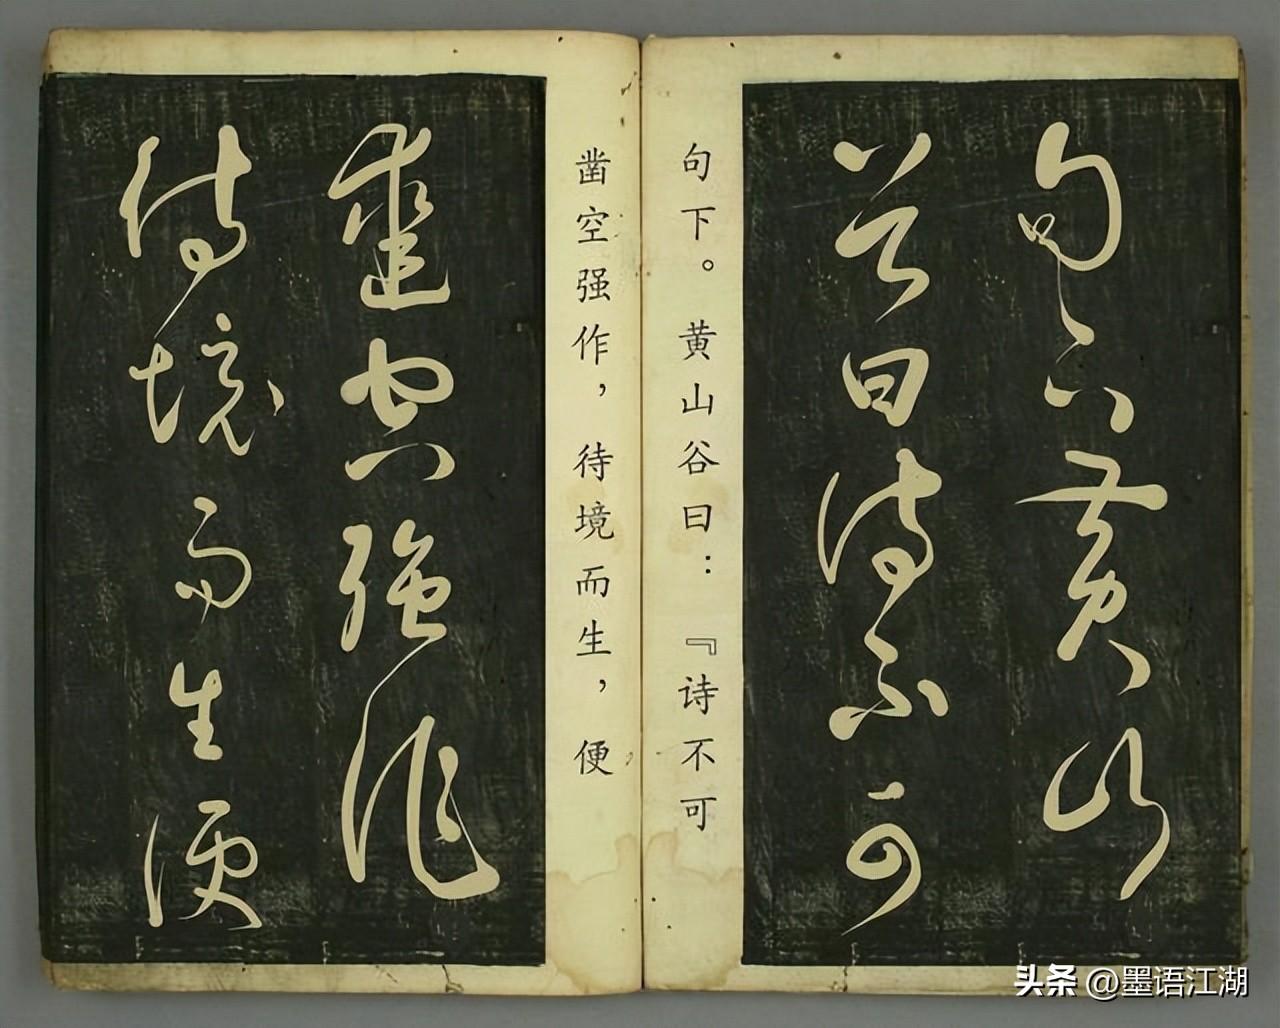 句下黄山
谷曰诗不可
句下。黄山谷曰：『诗不可
凿空强作，待境而生，便
凿空强作
待境而生便
头条 @墨语江湖